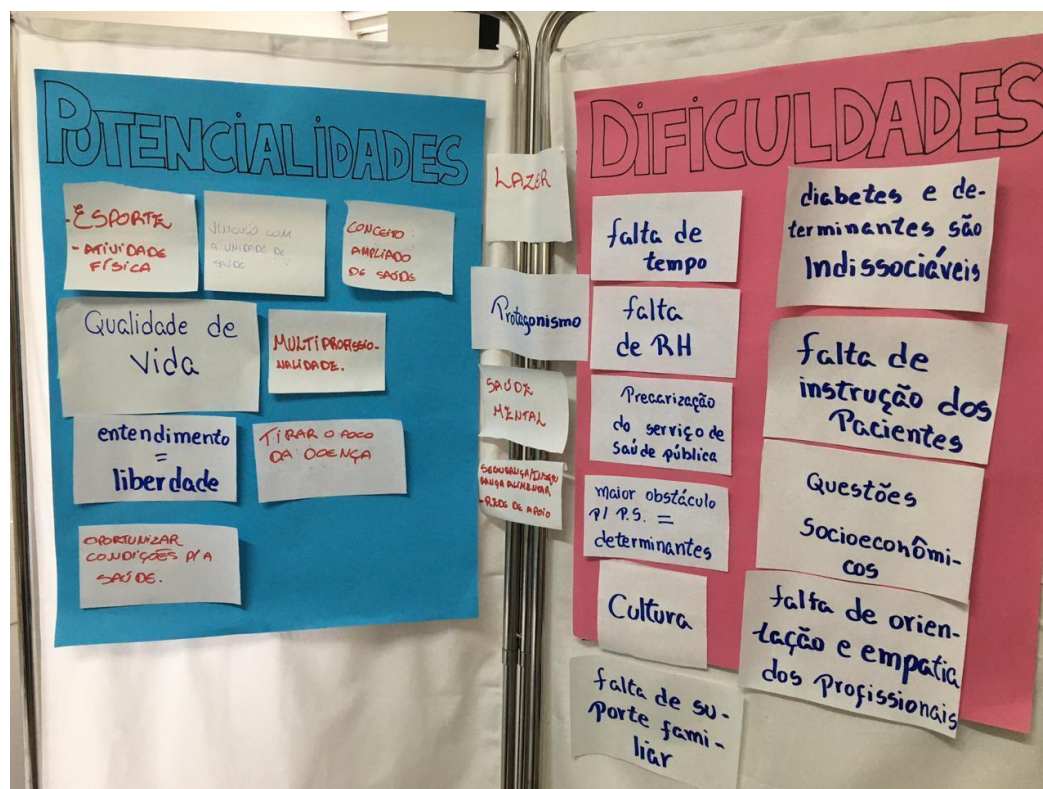 POTENCIALIDADES
- ESPORTE
- ATIVIDADE
FÍSICA
VINCULO COM
A UNIDADE DE
SAÚDE
CONCEITO
AMPLIADO
DE SAÚDE
Qualidade de
Vida
MULTIPROFISSIO-
NALIDADE.
entendimento
=
liberdade
TIRAR O FOCO
DA DOENÇA
OPORTUNIZAR
CONDIÇÕES P/A
SAÚDE.
LAZER
Protagonismo
SAÚDE
MENTAL
SEGURANÇA/INSEGU
RANÇA ALIMENTAR
- REDE DE APOIO
DIFICULDADES
falta de
tempo
falta
de RH
Precarização
do serviço de
saúde pública
maior obstáculo
p/ P.S. =
determinantes
Cultura
falta de su-
porte fami-
liar
diabetes e de-
terminantes são
Indissociáveis
falta de
instrução dos
Pacientes
Questões
Socioeconômi-
cos
falta de orien-
tação e empatia
dos profissionais